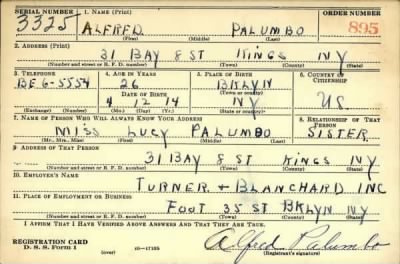 SERIAL NUMBER 1. NAME (Print) ORDER NUMBER
3325 ALFRED PALUMBO 895
(First) (Middle) (Last)
2. ADDRESS (Print)
31 BAY 8 ST KINGS NY
(Number and street or R. F. D. number) (Town) (County) (State)
3. TELEPHONE 4. AGE IN YEARS 5. PLACE OF BIRTH 6. COUNTRY OF CITIZENSHIP
BE 6-5554 26 BKLYN
DATE OF BIRTH (Town or county)
4 12 14 NY US
(Exchange) (Number) (Mo.) (Day) (Yr.) (State or country)
7. NAME OF PERSON WHO WILL ALWAYS KNOW YOUR ADDRESS 8. RELATIONSHIP OF THAT PERSON
MISS LUCY PALUMBO SISTER
(Mr., Mrs., Miss) (First) (Middle) (Last)
9. ADDRESS OF THAT PERSON
31 BAY 8 ST KINGS NY
(Number and street or R. F. D. number) (Town) (County) (State)
10. EMPLOYER'S NAME
TURNER + BLANCHARD INC
11. PLACE OF EMPLOYMENT OR BUSINESS
FOOT 35 ST BKLYN NY
(Number and street or R. F. D. number) (Town) (County) (State)
I AFFIRM THAT I HAVE VERIFIED ABOVE ANSWERS AND THAT THEY ARE TRUE.
REGISTRATION CARD
D. S. S. Form 1 16—17105 Alfred Palumbo
(Registrant's signature)